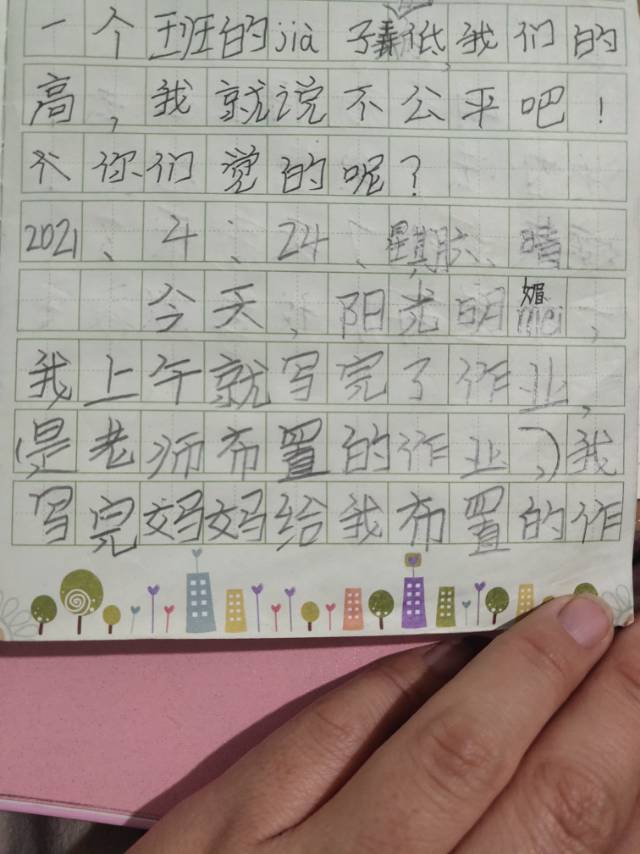 一个班的jià子低,我们的
高,我就说不公平吧!
你们觉的呢?
2021、4、24、星期六、晴
今天,阳光明媚mei,
我上午就写完了作业,
(是老师布置的作业,)我
写完妈妈给我布置的作